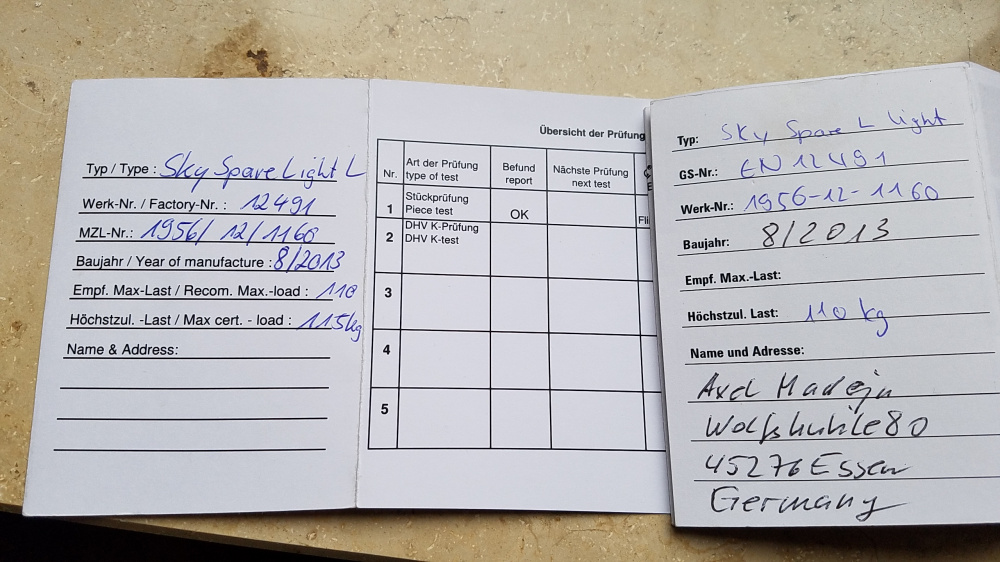 Typ / Type : Sky Spare Light L
Werk-Nr. / Factory-Nr. : 12491
MZL-Nr.: 1956/ 12/1160
Baujahr / Year of manufacture : 8/2013
Empf. Max-Last / Recom. Max.-load : 110
Höchstzul. -Last / Max cert. - load : 115kg
Name & Address:
Übersicht der Prüfung
Nr. Art der Prüfung type of test Befund report Nächste Prüfung next test
1 Stückprüfung Piece test OK Fli
2 DHV K-Prüfung DHV K-test
3
4
5
Typ: Sky Spare L light
GS-Nr.: EN 12491
Werk-Nr.: 1956-12-1160
Baujahr: 8/2013
Empf. Max.-Last:
Höchstzul. Last: 110 kg
Name und Adresse:
Axel
80
45276 Essen
Germany